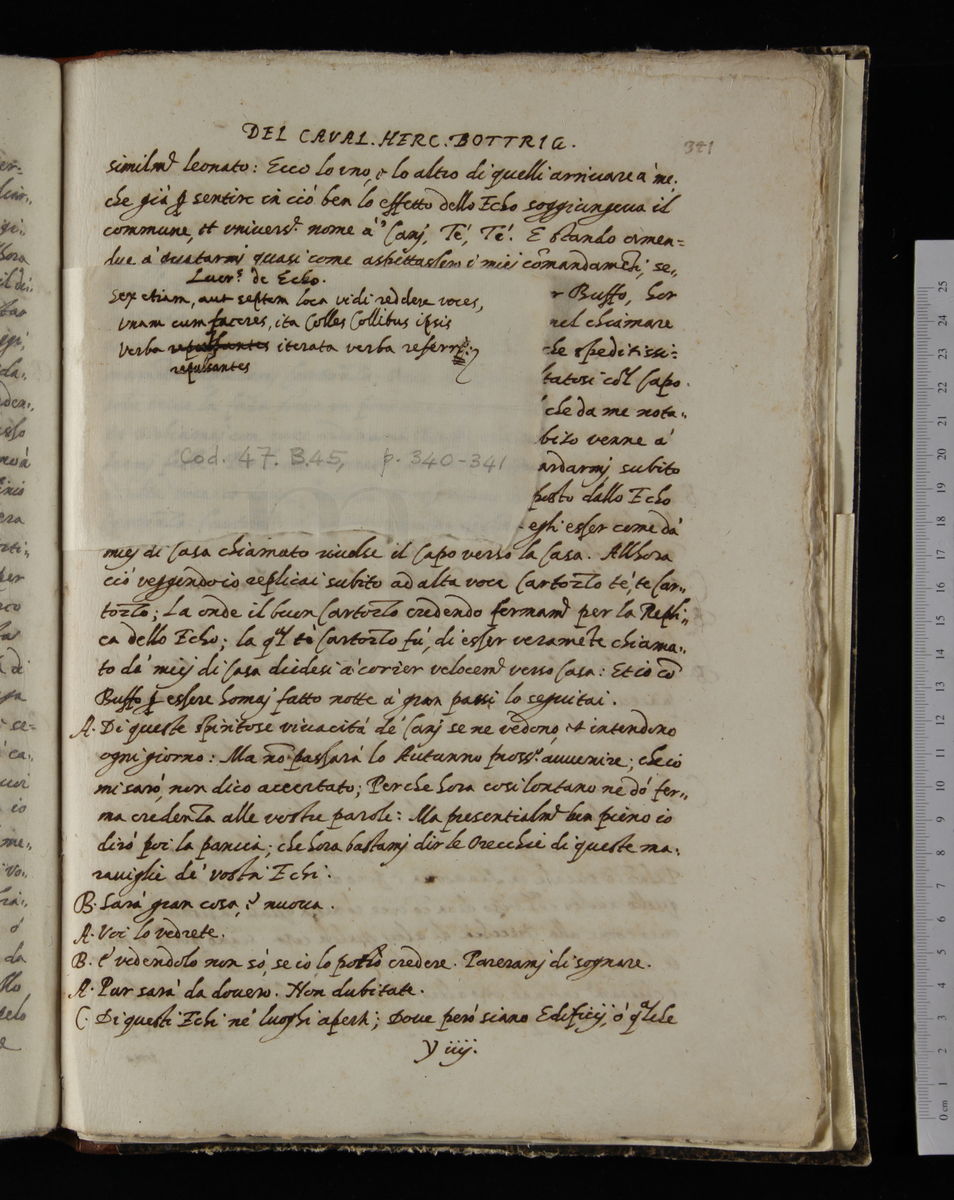 DEL CAVAL. HERC. BOTTRIG.
341
similmẽ leonato: Ecco lo uno, e lo altro di quelli arrivare à me,
che già ꝑ sentire in ciò ben lo effetto dello Echo soggiungeva il
commune, et univers.e nome à Canj, Té, Té. E stando amen=
due à guatarmj quasi come aspettassero i miej comandamẽti, se,,
Lucr.o de Echo.
Sex etiam, aut septem loca vidi reddere voces,
r Buffo, hor
Unam cum faceres, ita Colles Collibus ipsis
nel chiamare
Verba repulsantes iterata verba referre
che speditissi=
repulsantes
tatosi cõl Capo.
che da me nota,,
bizo venne à
Cod. 47. B.45, p. 340-341
ardarmj subito
posto dallo Echo
egli esser come dà
miej di Casa chiamato rivolse il Capo verso la Casa. Allhora
ciò veggendo io replicai subito ad alta voce Cartozlo te, te Car,,
tozlo; La onde il buon Cartozlo credendo fermamẽ per la Repli,,
ca dello Echo; la q̃l té Cartozlo fú, di esser veramẽte chiama=
to dá miej di Casa diedesi à correr velocemẽ verso Casa: Et io cõ
Buffo ꝑ essere homaj fatto notte à gran passi lo seguitai.
A. Di queste spiritose vivacitá dé Canj se ne vedono, et intendono
ogni giorno: Ma nõ passará lo Autunno pross.o avvenire, che io
mi saró, non dico accertato; Perche hora cosi lontano ne dó fer,,
ma credenza alle vostre parole: Ma presentialmẽ ben pieno io
diró poi la pancia, che hora bastamj dir le Orecchie di queste ma,,
raviglie dé vostri Echi.
B. Sará gran cosa, é nuova.
A. Voi lo vedrete.
B. E vedendolo non só, se io lo potró credere. Pareramj di sognare.
A. Pur sará da dovero. Non dubitate.
C. Di questi Echi né luoghi aperti; Dove peró siano Edificij, ó q̃lche
Y iiij.